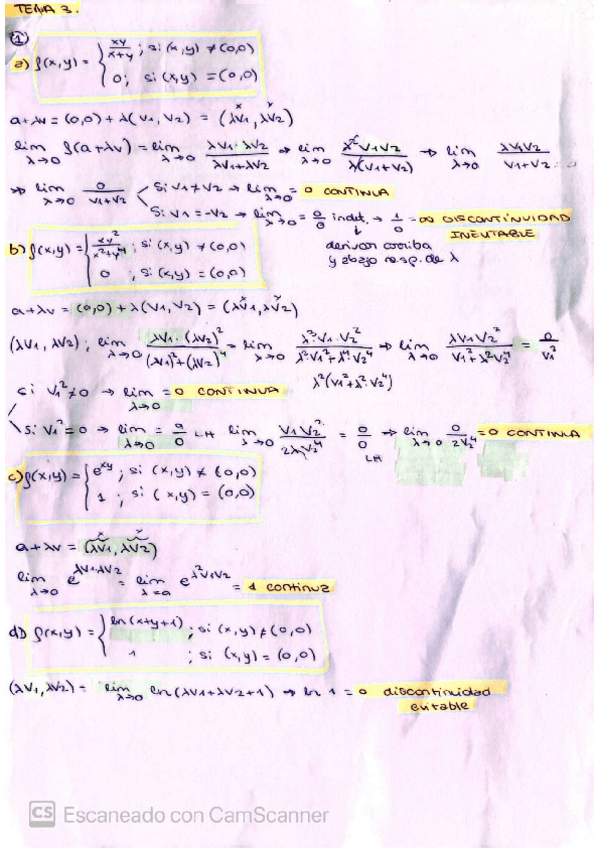 TEMA 3.
①
a) f(x,y) = { xy/(x+y) ; si (x,y) ≠ (0,0)
0; si (x,y) = (0,0)
a+λv = (0,0) + λ(v1, v2) = (λv1, λv2)
lim λ→0 f(a+λv) = lim λ→0 λv1·λv2/(λv1+λv2) → lim λ→0 λ²v1v2/λ(v1+v2) → lim λ→0 λv1v2/(v1+v2)
⇒ lim λ→0 0/(v1+v2) < Si v1≠v2 → lim λ→0 = 0 CONTINUA
Si v1 = -v2 → lim λ→0 = 0/0 indet. → 1/0 = ∞ DISCONTINUIDAD
INEVITABLE
derivar arriba
y abajo resp. de λ
b) f(x,y) = { xy²/(x²+y⁴) ; si (x,y) ≠ (0,0)
0 ; si (x,y) = (0,0)
a+λv = (0,0) + λ(v1, v2) = (λv1, λv2)
(λv1, λv2) ; lim λ→0 λv1·(λv2)²/((λv1)²+(λv2)⁴) = lim λ→0 λ³·v1·v2²/(λ²v1²+λ⁴·v2⁴) → lim λ→0 λv1v2²/(v1²+λ²v2⁴) = 0/v1²
λ²(v1²+λ²·v2⁴)
si v1² ≠ 0 → lim λ→0 = 0 CONTINUA
si v1² = 0 → lim λ→0 = 0/0 LH lim λ→0 v1v2²/2λv2⁴ = 0/0 LH → lim λ→0 0/2v2⁴ = 0 CONTINUA
c) f(x,y) = { e^xy ; si (x,y) ≠ (0,0)
1 ; si (x,y) = (0,0)
a+λv = (λv1, λv2)
lim λ→0 e^λv1·λv2 = lim λ=0 e^λ²v1v2 = 1 continua
d) f(x,y) = { ln(x+y+1) ; si (x,y) ≠ (0,0)
1 ; si (x,y) = (0,0)
(λv1, λv2) = lim λ→0 ln(λv1+λv2+1) → ln 1 = 0 discontinuidad
evitable
CS Escaneado con CamScanner